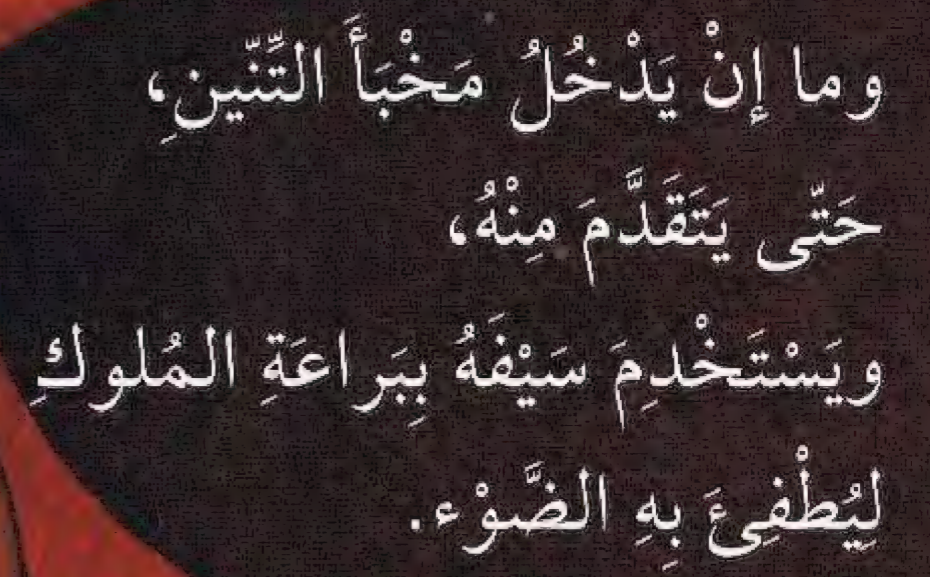 وما إنْ يَدْخُلُ مَخْبَأَ التِّنّينِ،
حَتّى يَتَقَدَّمَ مِنْهُ،
ويَسْتَخْدِمَ سَيْفَهُ بِبَراعَةِ المُلوكِ
لِيُطْفِئَ بِهِ الضَّوْء.